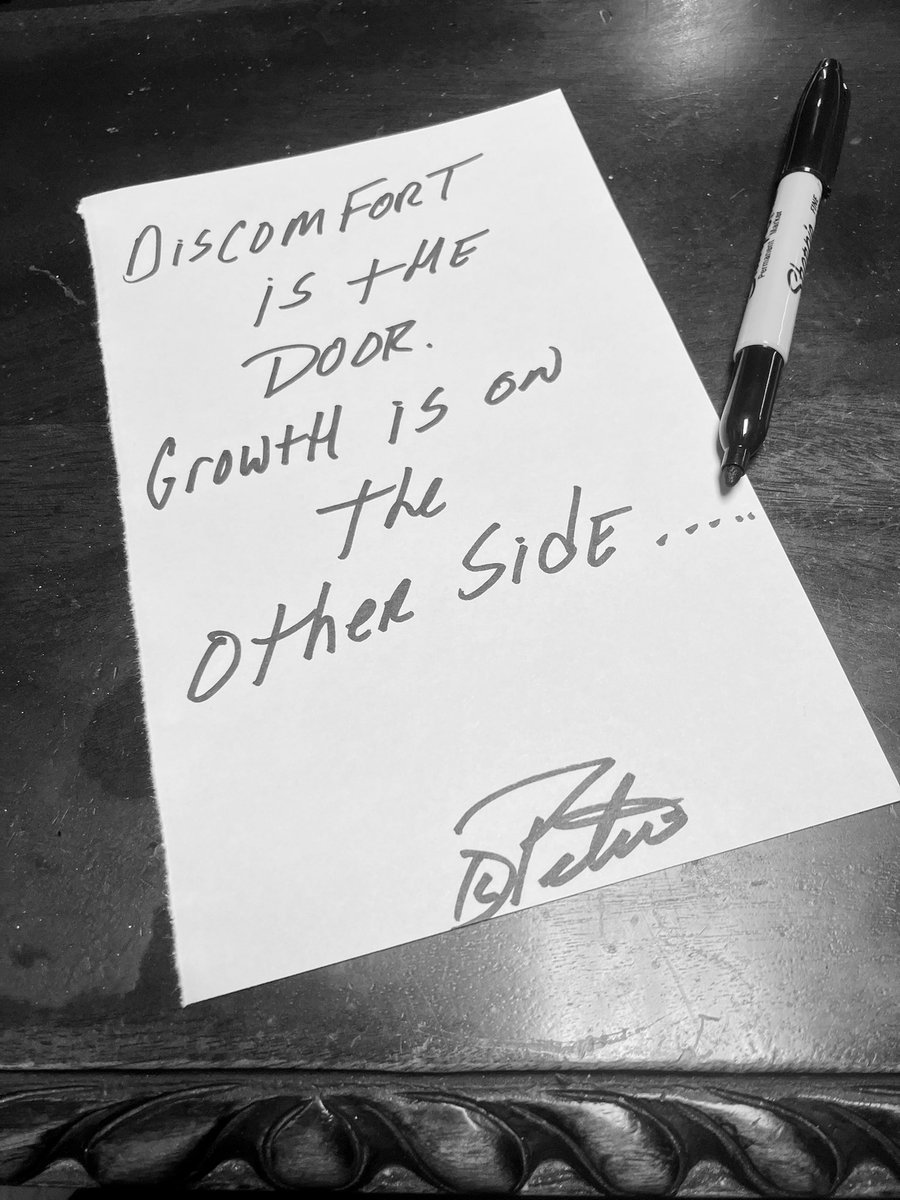 DiscomFort
is tHE
DOOR.
GrowtH is on
the
Other SidE .....
Sharpie FINE
Permanent Marker